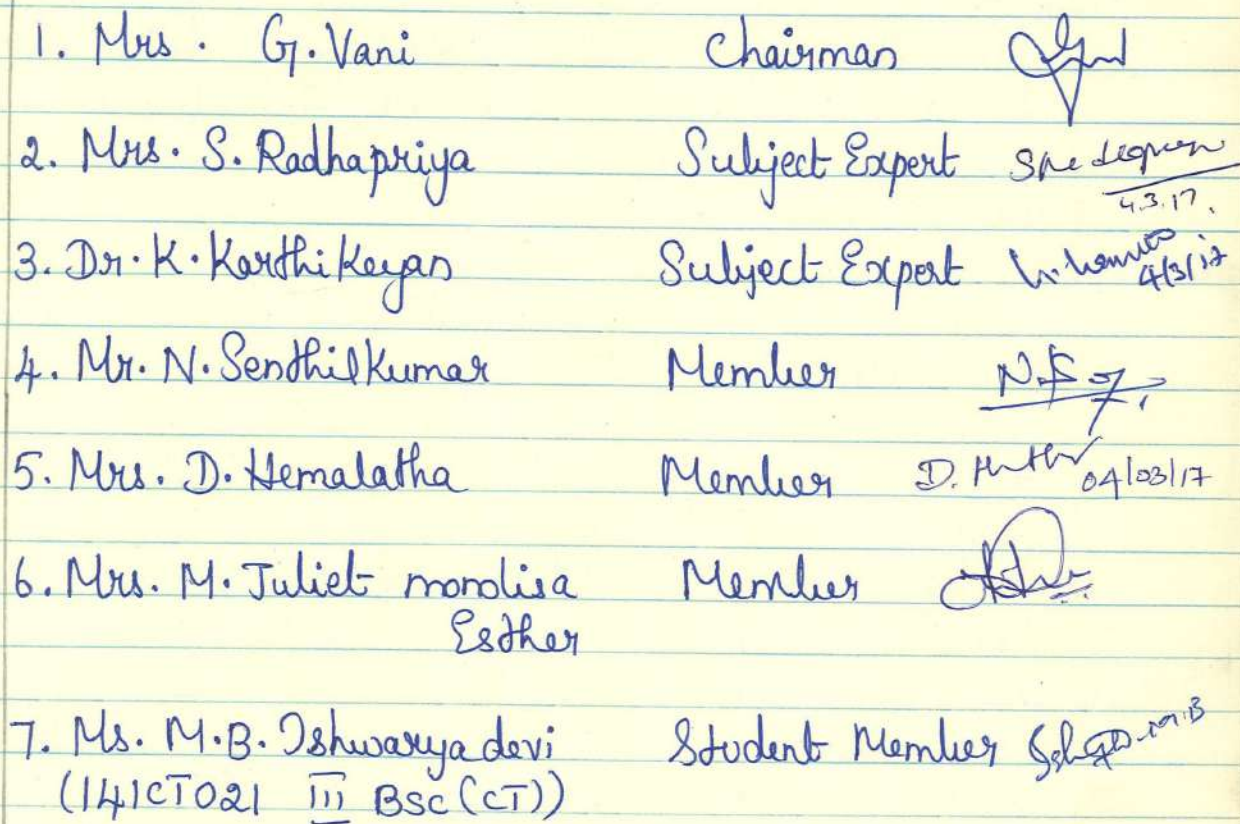 1. Mrs. G. Vani Chairman
2. Mrs. S. Radhapriya Subject Expert
4.3.17.
3. Dr. K. Karthikeyan Subject Expert
4/3/17
4. Mr. N. Senthilkumar Member
5. Mrs. D. Hemalatha Member D. 04/03/17
6. Mrs. M. Juliet monolisa Member
Esther
7. Ms. M.B. Ishwarya devi Student Member M.B
(141CT021 III BSC (CT))